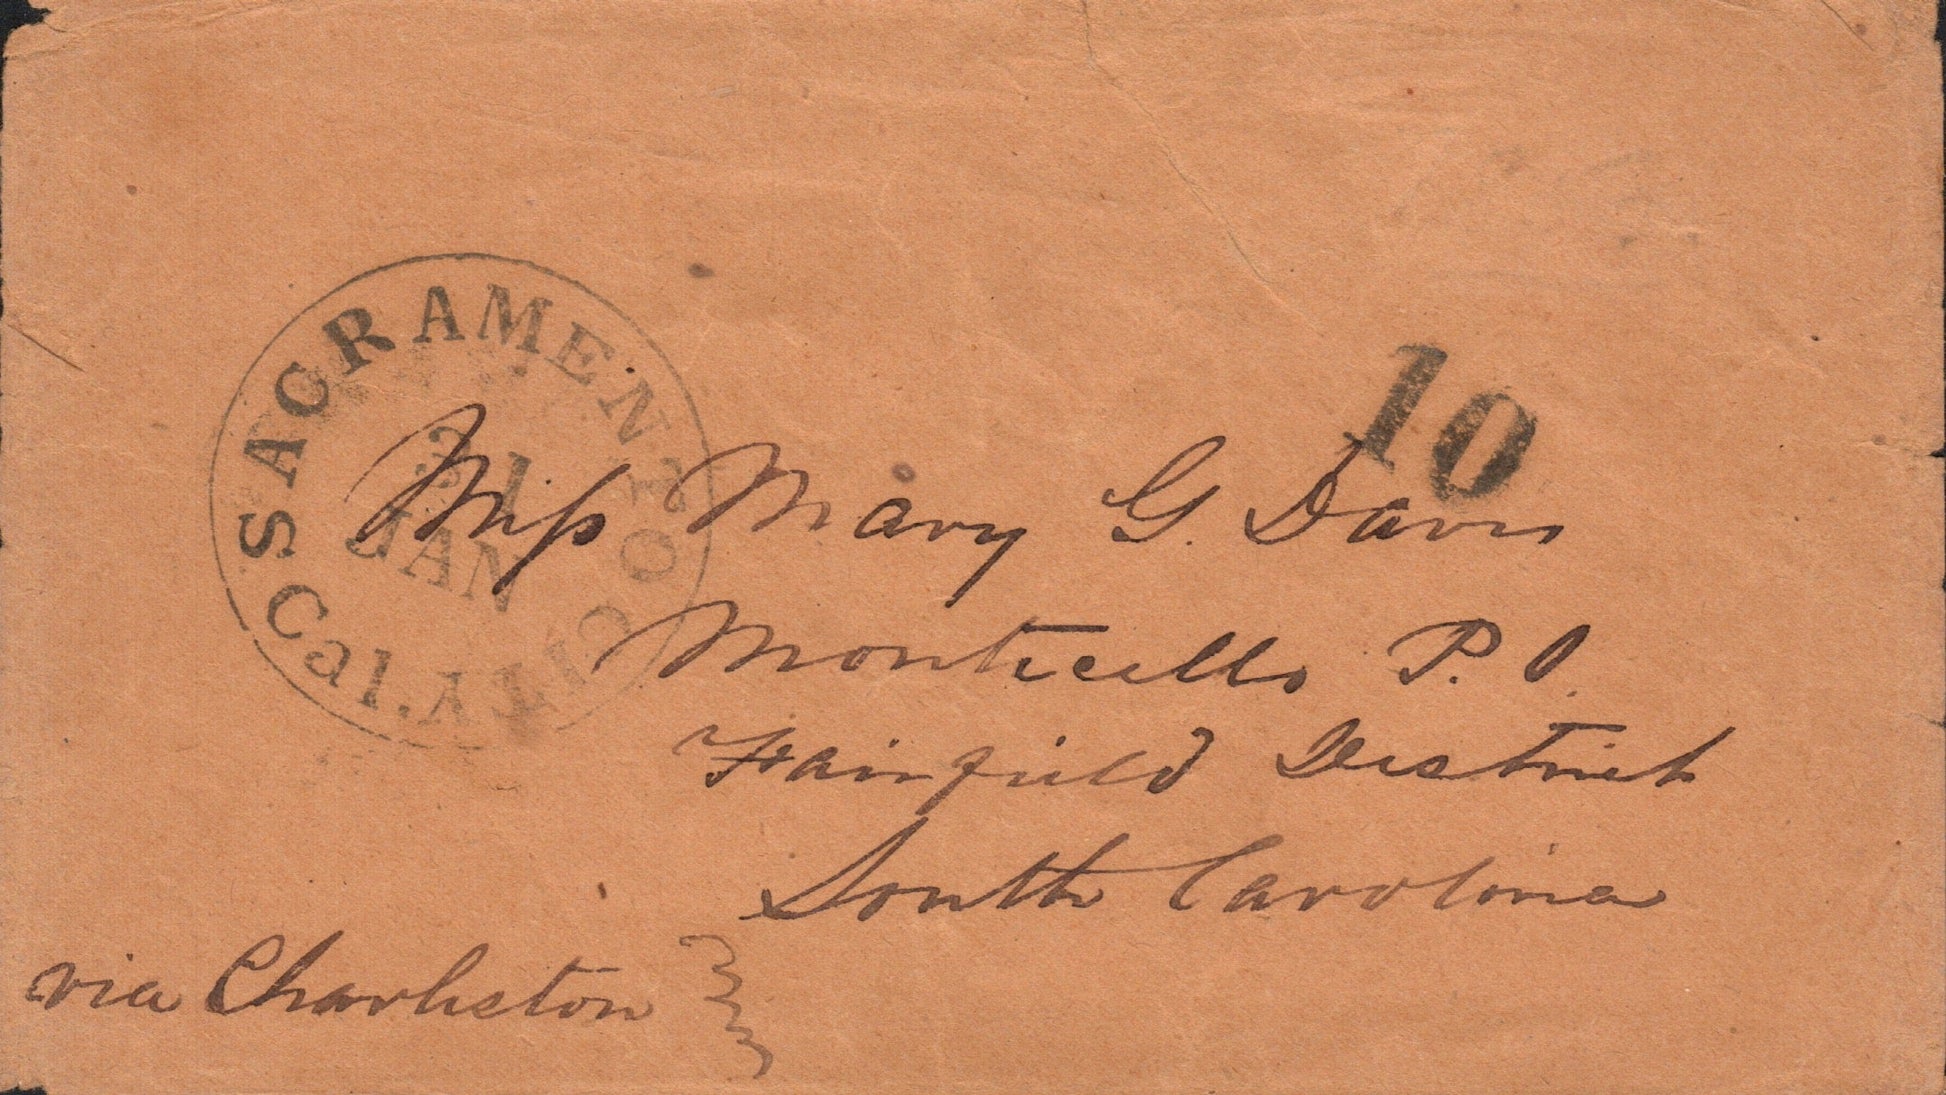 SACRAMENTO CITY
Cal.
31
JAN
10
Miss Mary G. Davis
Monticello P. O.
Fairfield District
South Carolina
via Charleston